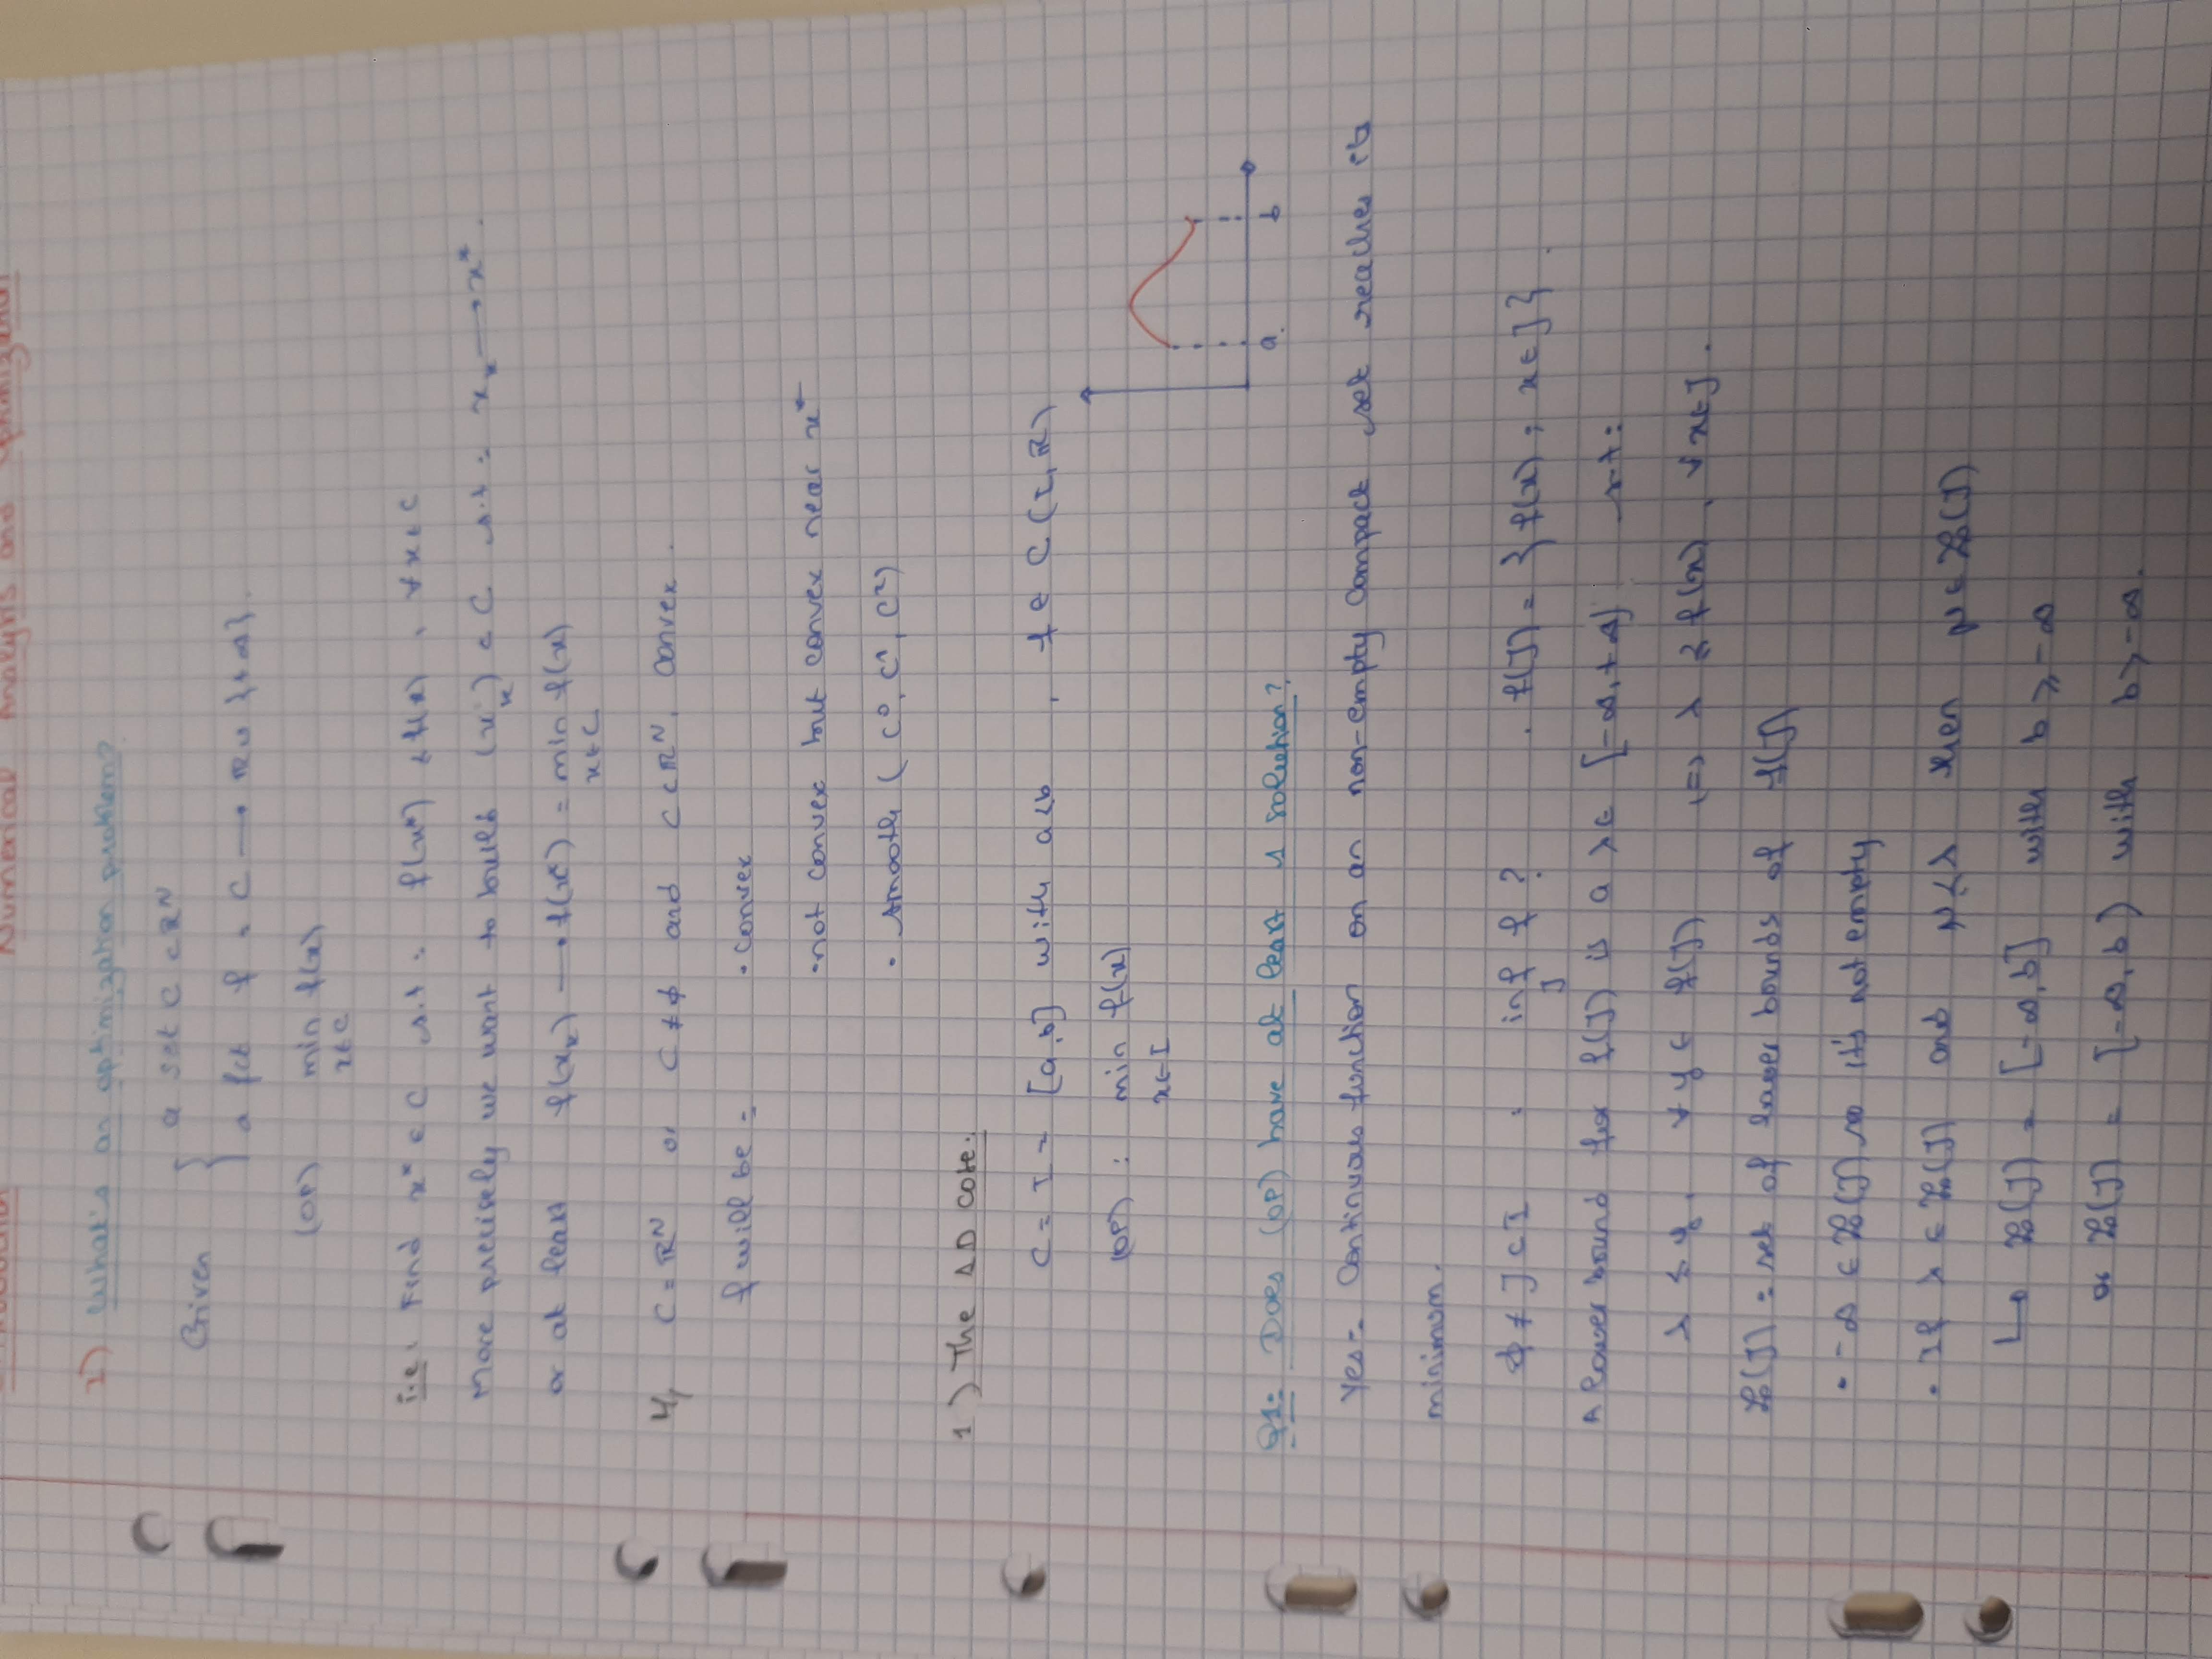 Numerical Analysis and Optimization
I) What's an optimization problem?
Given { a set C ⊂ ℝᴺ
a fct f : C → ℝ ∪ {+∞}.
(OP) min f(x)
x∈C
i.e: Find x* ∈ C s.t : f(x*) ≤ f(x), ∀x∈C
More precisely we want to build (xₖ) ⊂ C s.t : xₖ → x*.
or at least f(xₖ) → f(x*) = min f(x)
x∈C
C = ℝᴺ or C ≠ ∅ and C ⊂ ℝᴺ, convex.
f will be : • convex
• not convex but convex near x*
• smooth (C⁰, C¹, C²)
1) The 1D case.
C = I = [a,b] with a<b , f ∈ C(I,ℝ)
(OP) : min f(x)
x∈I
a. b
Q1: Does (OP) have at least 1 solution?
Yes: Continuous function on an non-empty compact set reaches its
minimum.
∅ ≠ J ⊂ I , inf f ? . f(J) = {f(x) ; x∈J}.
J
A lower bound for f(J) is a λ∈ [-∞,+∞] s.t:
λ ≤ y, ∀y ∈ f(J) <=> λ ≤ f(x), ∀x∈J.
ℒ(J) = set of lower bounds of f(J)
• -∞ ∈ ℒ(J) so it's not empty
• If λ ∈ ℒ(J) and μ<λ then μ ∈ ℒ(J)
↳ ℒ(J) = [-∞,b] with b ≥ -∞
or ℒ(J) = [-∞,b) with b > -∞.